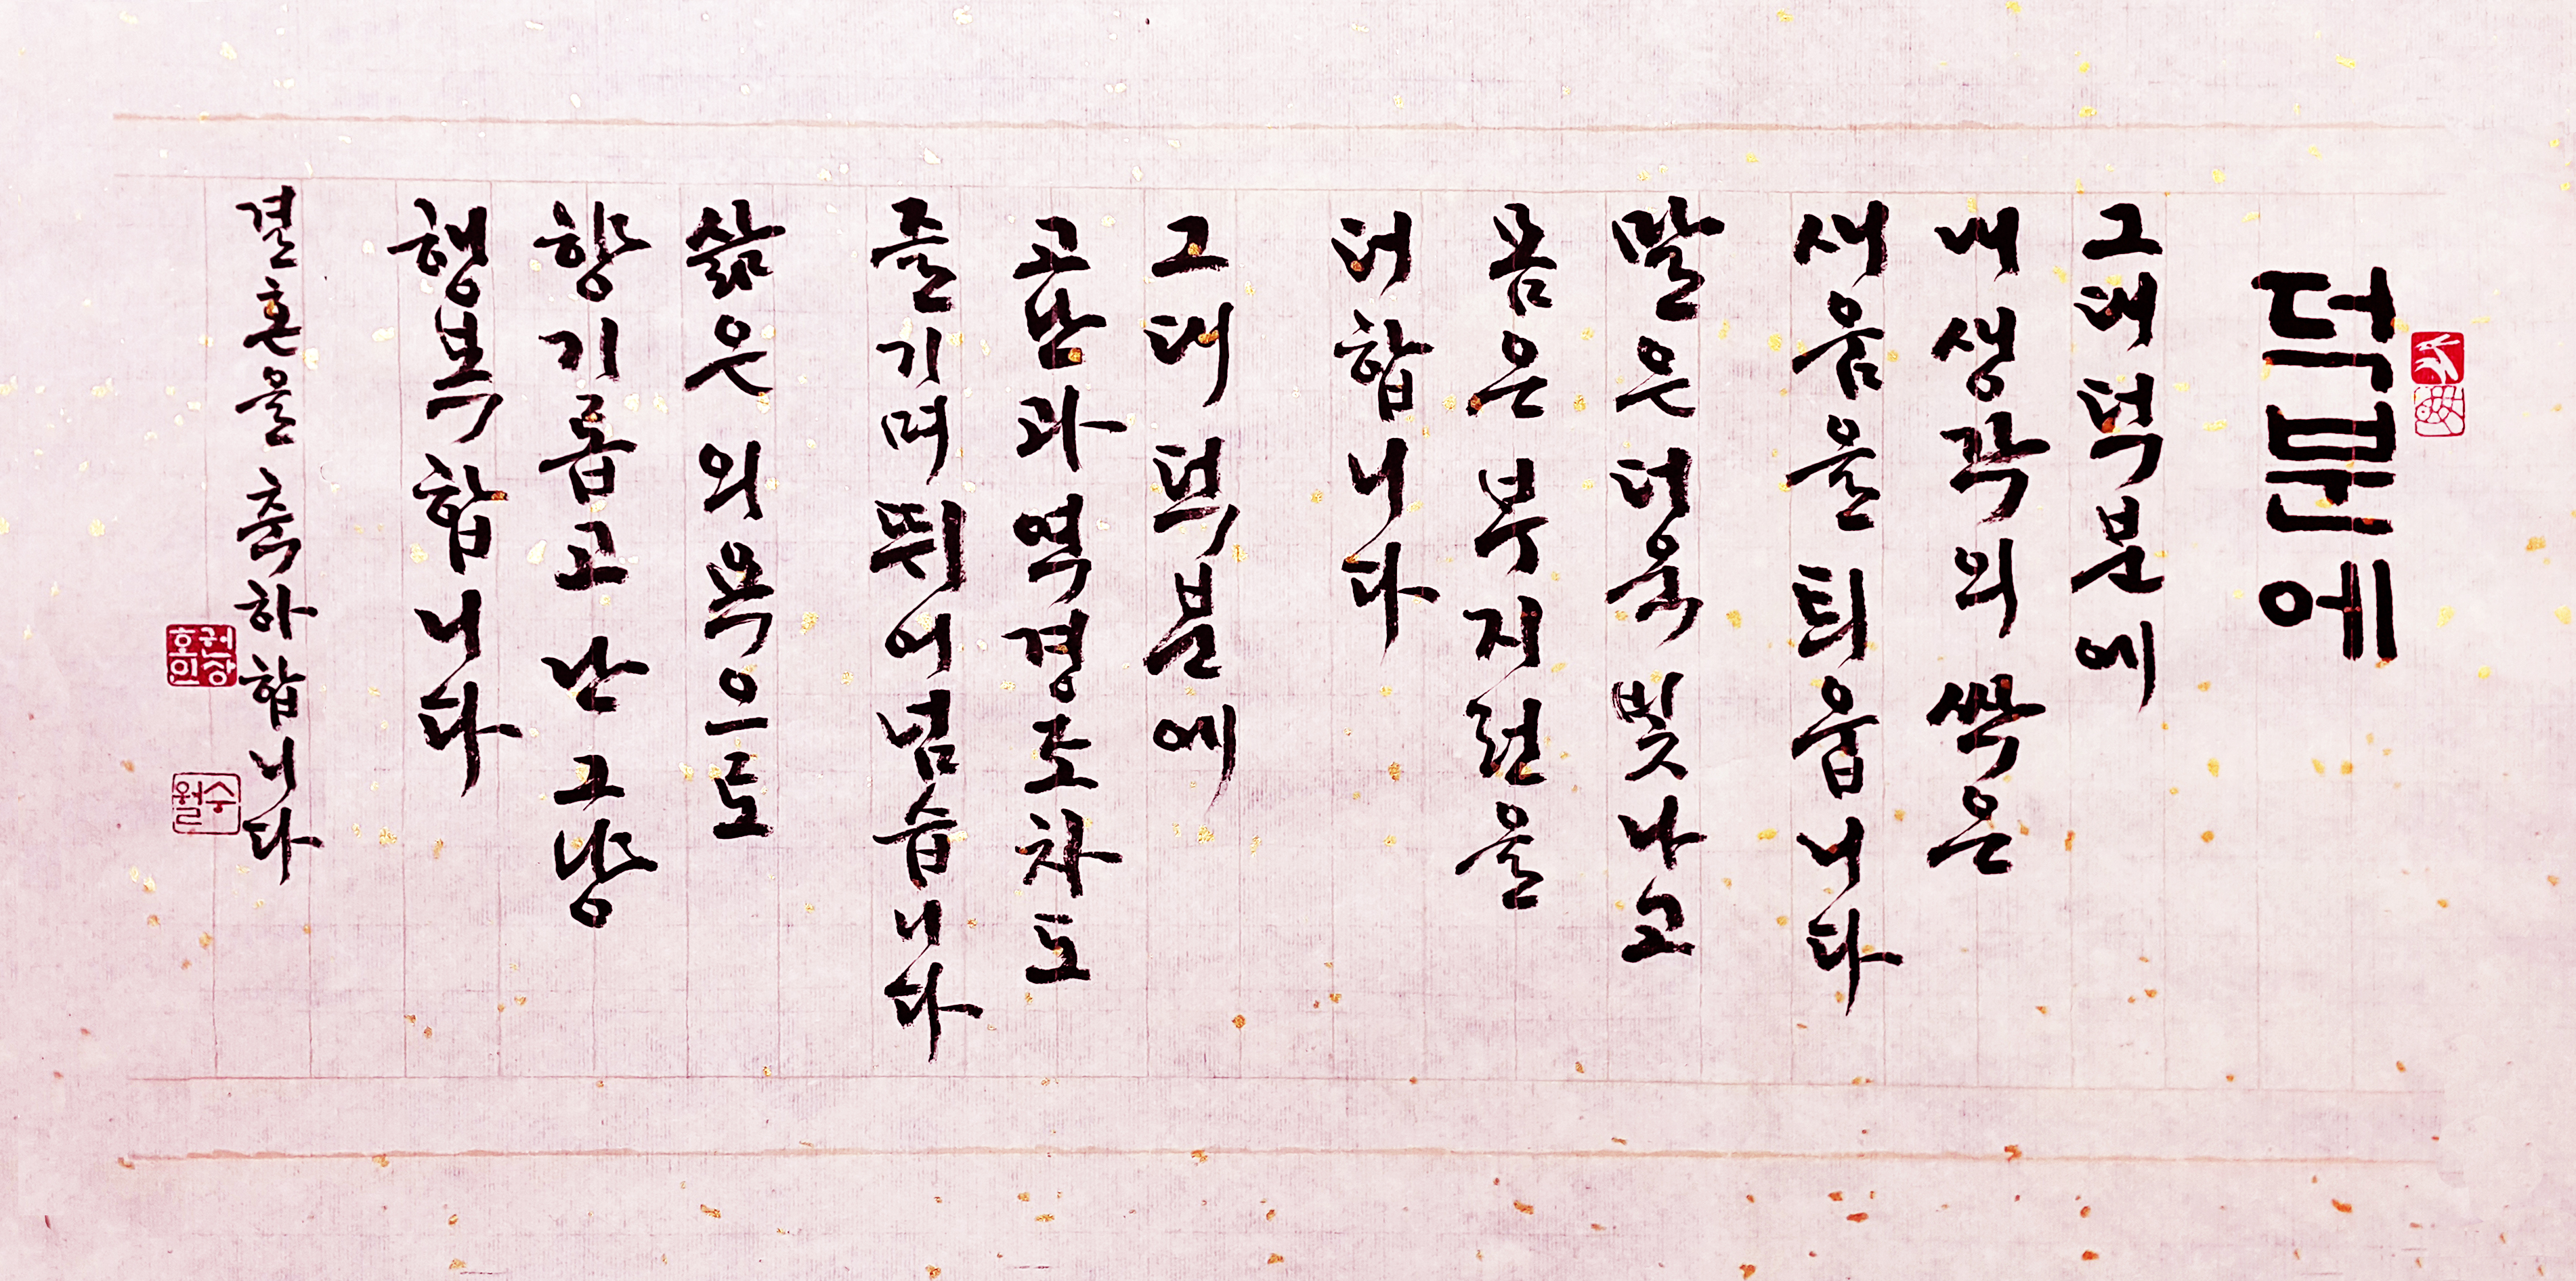 덕분에
그대 덕분에
내 생각의 싹은
새움을 틔웁니다
말은 더욱 빛나고
몸은 부지런을
더합니다
그대 덕분에
고난과 역경조차도
즐기며 뛰어넘습니다
삶은 외목으로
향기롭고 난 그냥
행복합니다
결혼을 축하합니다